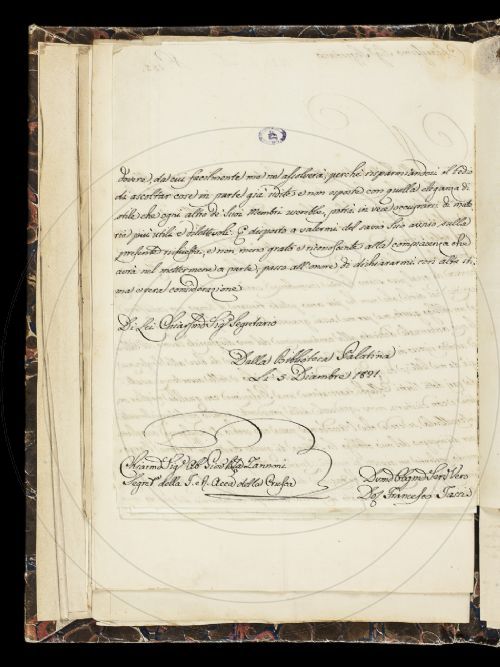 dovere, da cui facilmente me ne assolverà, perché risparmiandomi il tedio
di ascoltar cose in parte già udite e non esposte con quella eleganza di
stile che ogni altro de' suoi Membri userebbe, potrà in vece occuparsi di mate
ria più utile e dilettevole. E disposto a valermi del savio Suo avviso sulla
presente richiesta, e non meno grato e riconoscente alla compiacenza che
avrà nel mettermene a parte, passo all'onore di dichiararmi con alta sti
ma e vera considerazione
Di Lei Chiarissmo Sigr Segretario
Dalla Biblioteca Palatina
Li 5. Dicembre 1821.
Chiarmo Sigr Ab. Zannoni
Segrio della I. e R. Accad. della Crusca
Devmo Obblgmo Servo Vero
Francesco